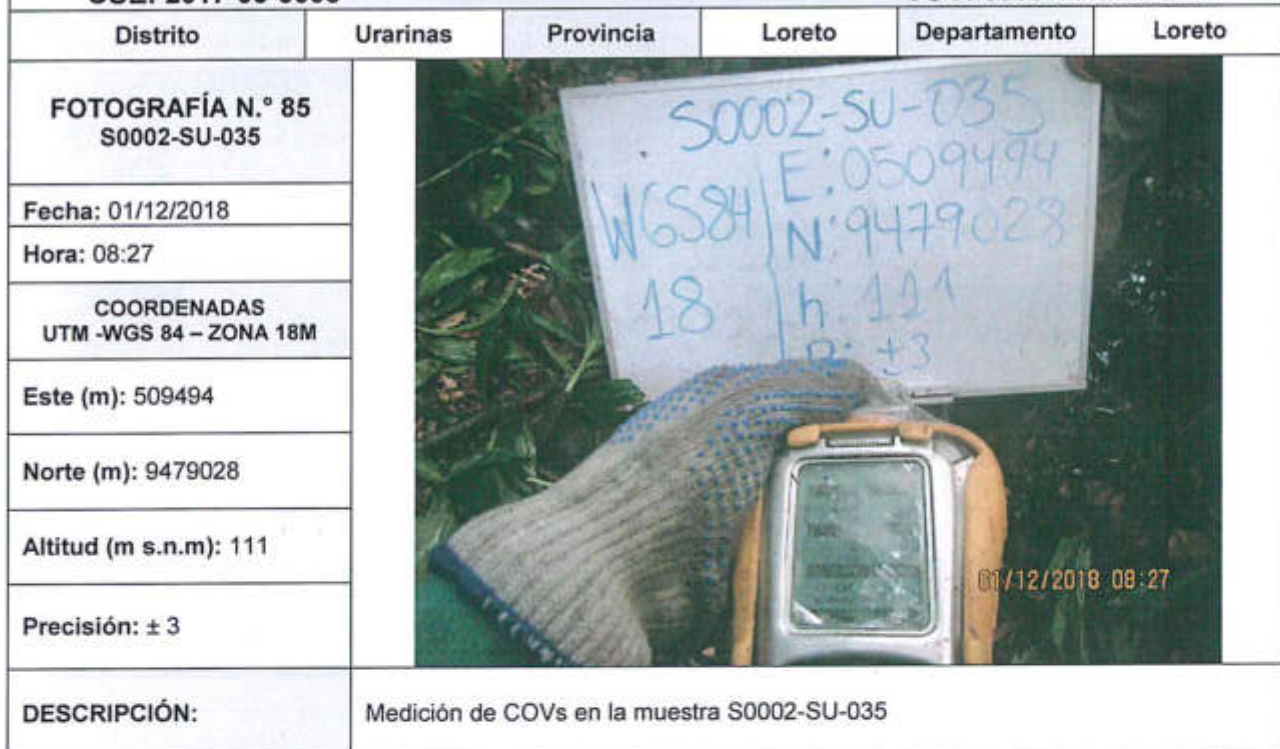 Distrito Urarinas Provincia Loreto Departamento Loreto
FOTOGRAFÍA N.° 85
S0002-SU-035
Fecha: 01/12/2018
Hora: 08:27
COORDENADAS
UTM -WGS 84 – ZONA 18M
Este (m): 509494
Norte (m): 9479028
Altitud (m s.n.m): 111
Precisión: ± 3
S0002-SU-035
WGS84
18
E: 0509494
N: 9479028
h: 111
P: ±3
01/12/2018 08:27
DESCRIPCIÓN: Medición de COVs en la muestra S0002-SU-035